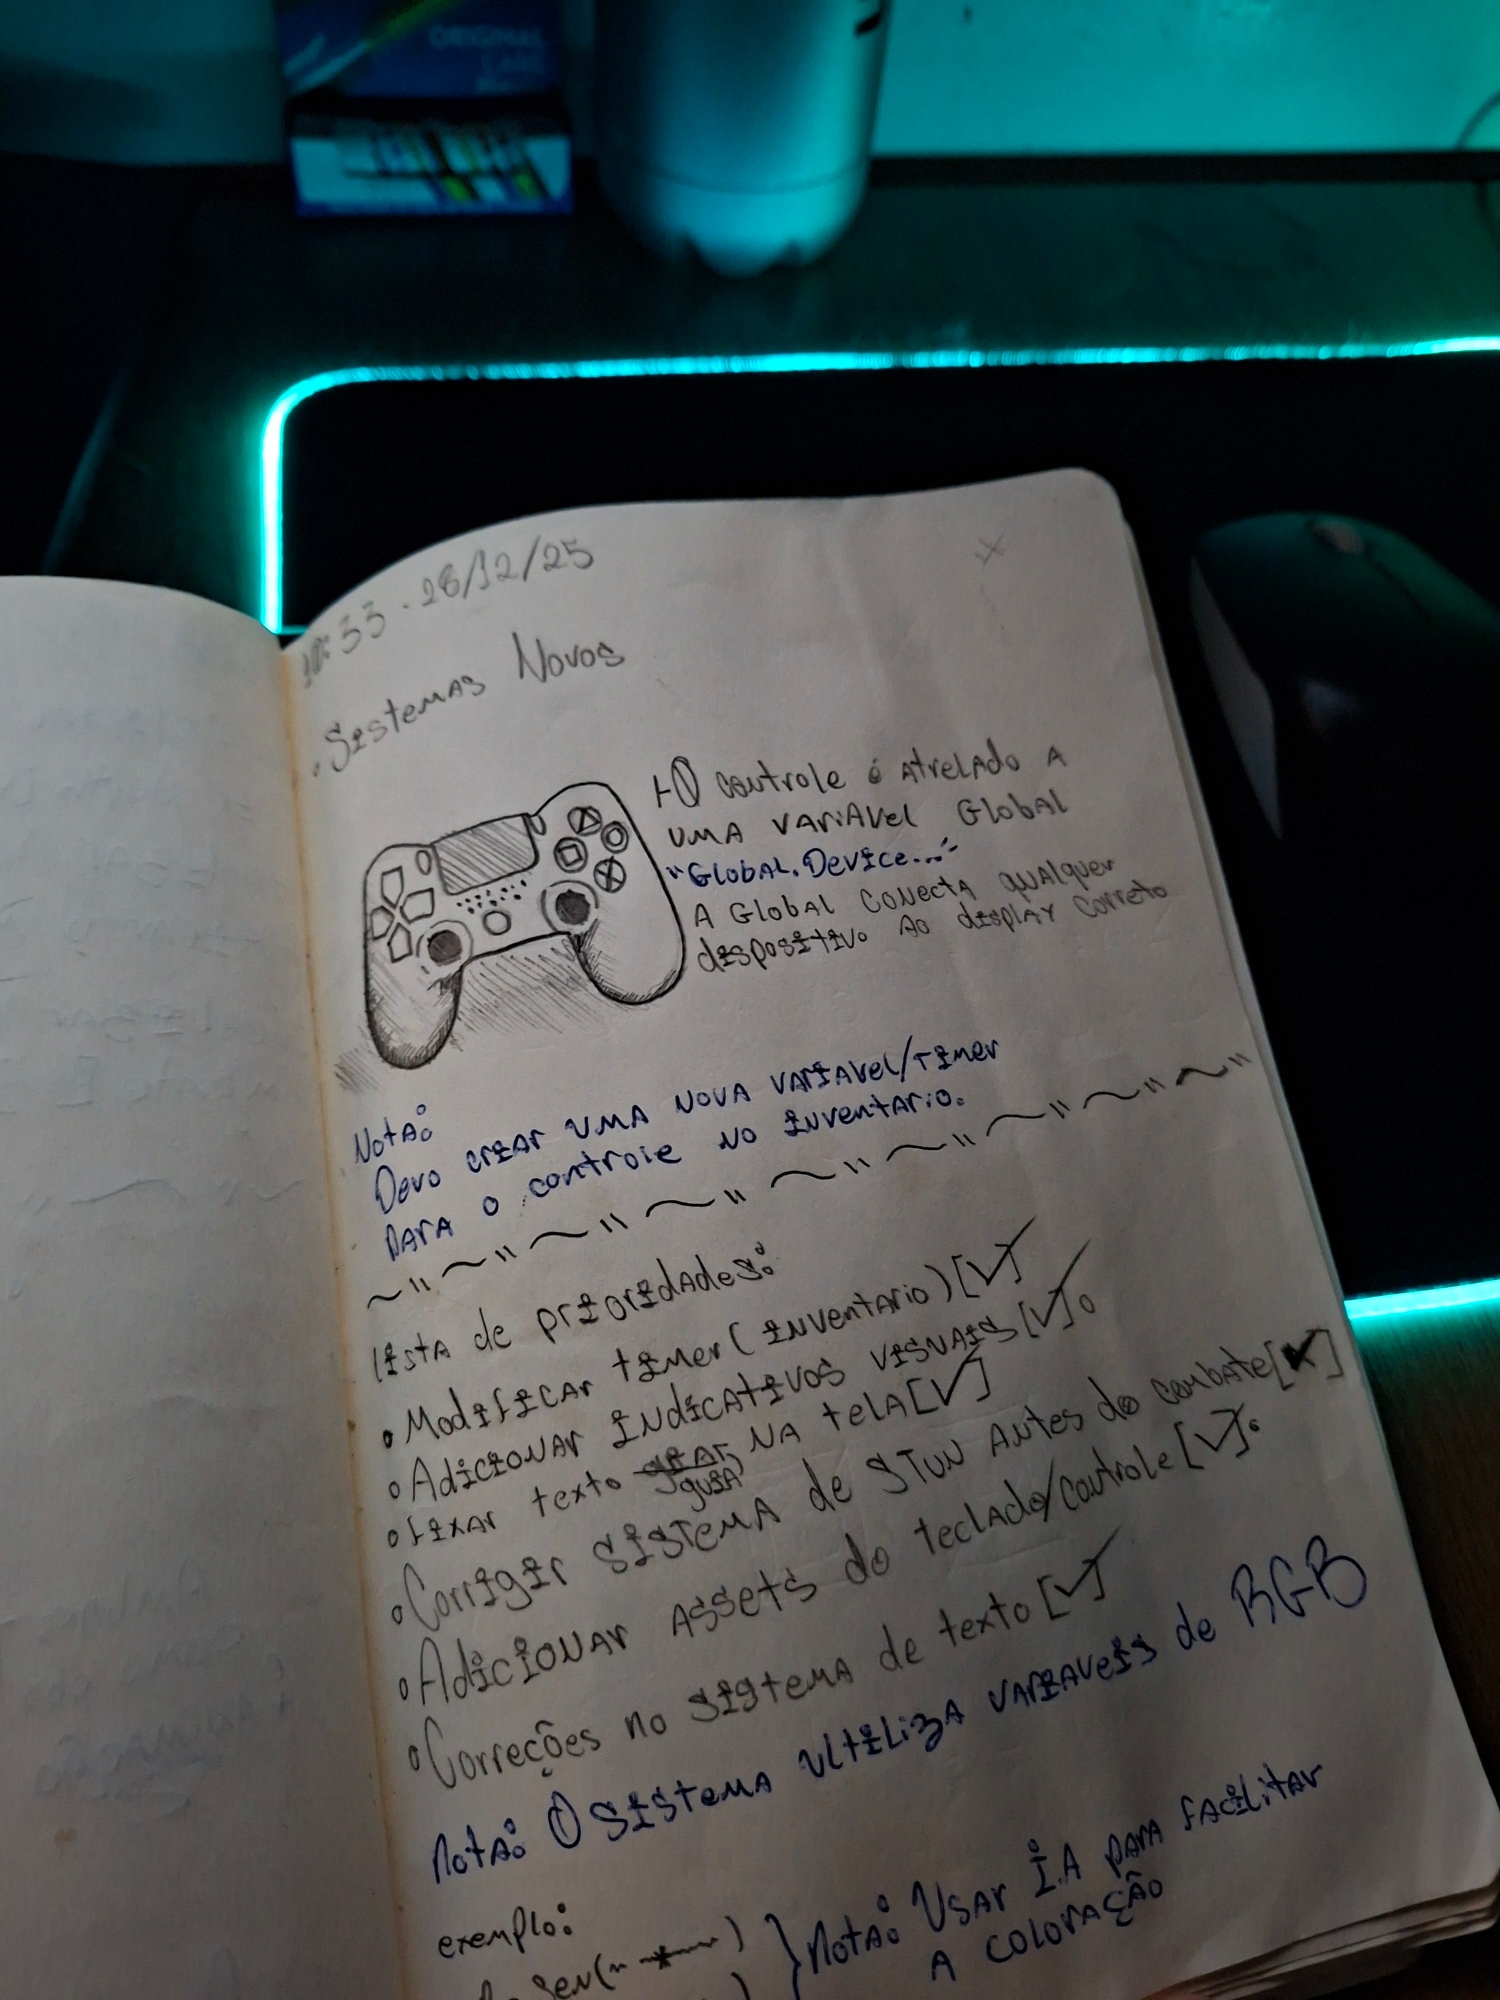 ORIGINAL
LINE
10:33 - 28/12/25
. Sistemas Novos
O controle é atrelado a
uma variavel Global
"Global.Device..."
A Global conecta qualquer
dispositivo ao display correto
Nota:
Devo criar uma nova variavel/timer
para o controle no inventario.
lista de prioridades:
• Modificar timer (inventario) [✓]
• Adicionar indicativos visuais [✓].
• fixar texto guia na tela [✓]
• Corrigir sistema de STUN antes do combate [x]
• Adicionar assets do teclado/controle [✓].
• Correções no sistema de texto [✓]
Nota: O sistema ultiliza variaveis de RGB
exemplo:
} Nota: Usar I.A para facilitar
a coloração